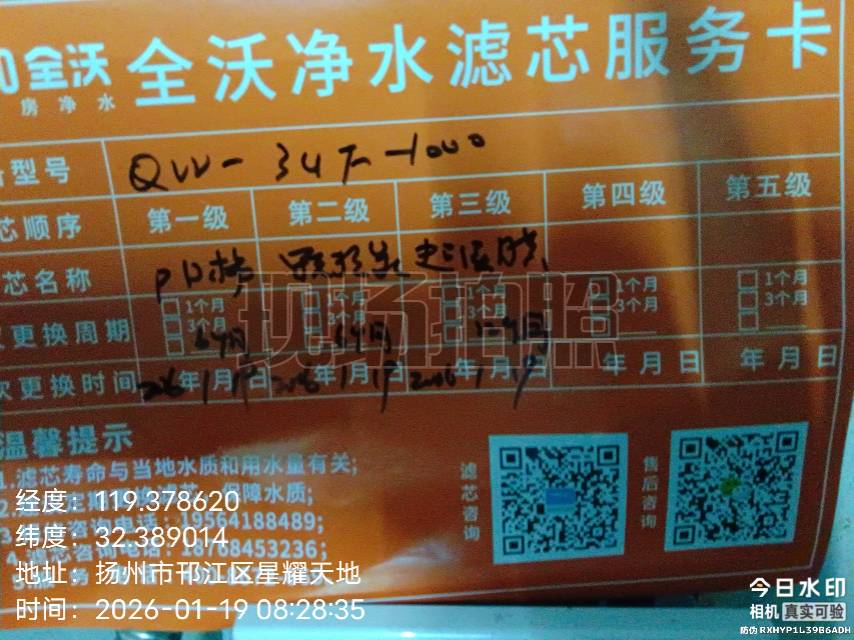 全沃 全沃净水滤芯服务卡
房净水
型号 QW-34F-1000
芯顺序 第一级 第二级 第三级 第四级 第五级
芯名称 PP棉
1个月 1个月 1个月 1个月 1个月
3个月 3个月 3个月 3个月 3个月
更换周期 6个月 6个月 12个月
次更换时间 2026年1月19日 2026年1月19日 2026年1月19日 年月日 年月日
现场拍照
温馨提示
1.滤芯寿命与当地水质和用水量有关;
保障水质;
19564188489;
18768453236;
滤芯咨询
售后咨询
经度:119.378620
纬度:32.389014
地址:扬州市邗江区星耀天地
时间:2026-01-19 08:28:35
今日水印
相机 真实可验
防伪 RXHYP1L39B6ADH